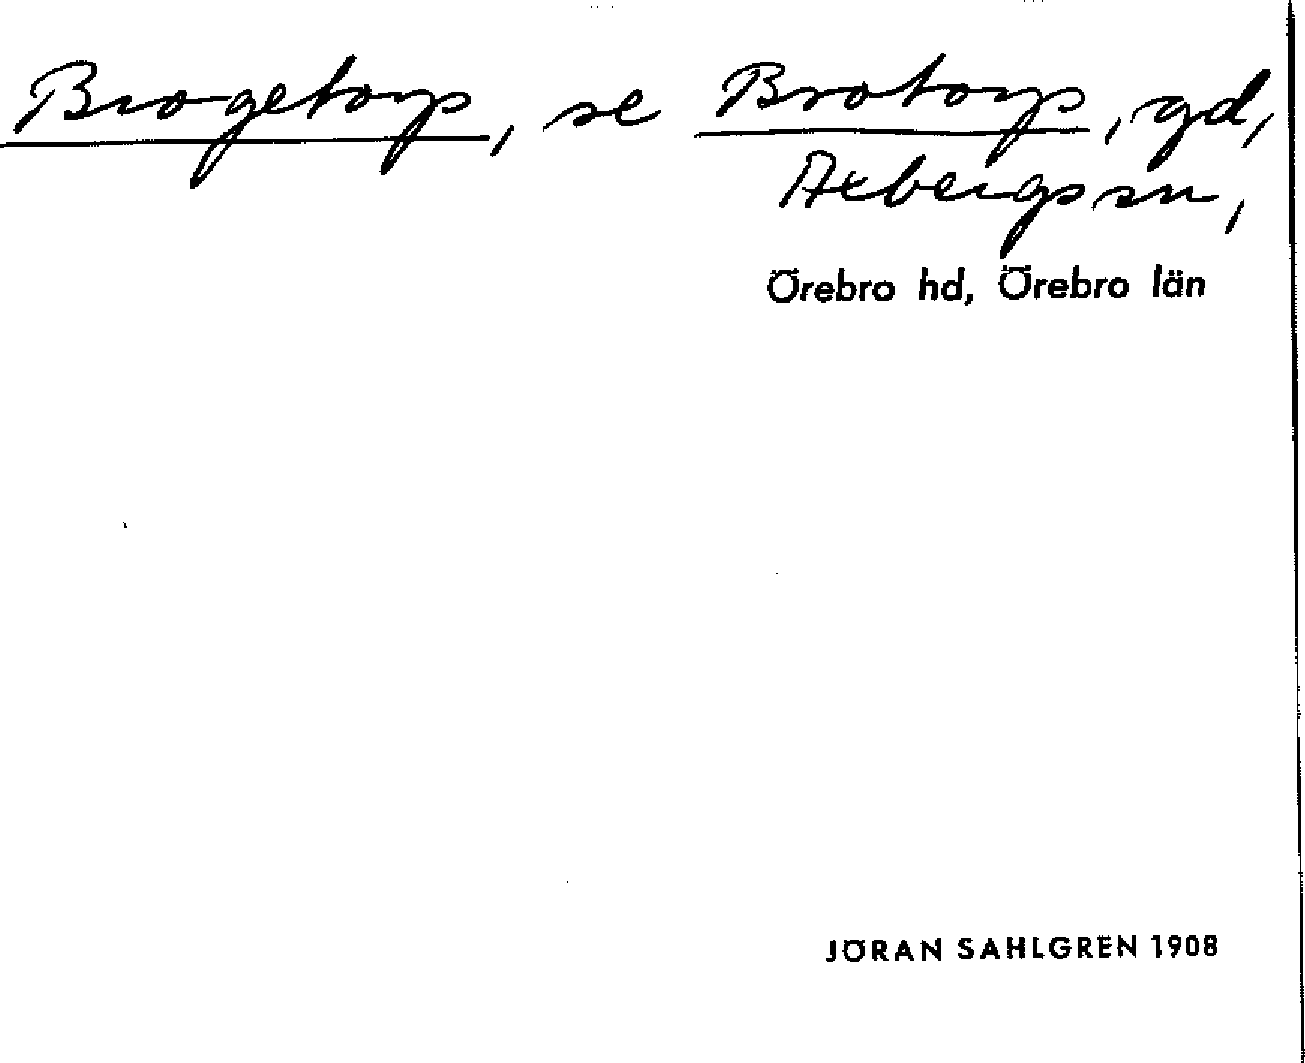 Brogetorp, se Brotorp, gd,
Axbergs sn,
Örebro hd, Örebro län
JÖRAN SAHLGREN 1908